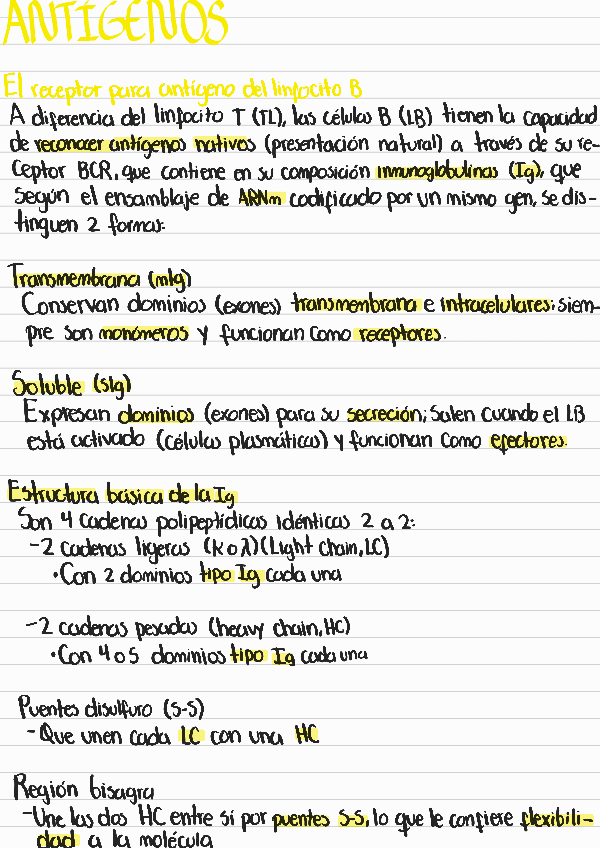 ANTÍGENOS
El receptor para antígeno del linfocito B
A diferencia del linfocito T (TL), las células B (LB) tienen la capacidad
de reconocer antígenos nativos (presentación natural) a través de su re-
ceptor BCR, que contiene en su composición inmunoglobulinas (Ig), que
según el ensamblaje de ARNm codificado por un mismo gen, se dis-
tinguen 2 formas:
Transmembrana (mIg)
Conservan dominios (exones) transmembrana e intracelulares; siem-
pre son monómeros y funcionan como receptores.
Soluble (sIg)
Expresan dominios (exones) para su secreción; Salen cuando el LB
está activado (células plasmáticas) y funcionan como efectores.
Estructura básica de la Ig
Son 4 cadenas polipeptídicas idénticas 2 a 2:
-2 cadenas ligeras (κ o λ) (Light chain, LC)
•Con 2 dominios tipo Ig cada una
-2 cadenas pesadas (heavy chain, HC)
•Con 4 o 5 dominios tipo Ig cada una
Puentes disulfuro (S-S)
-Que unen cada LC con una HC
Región bisagra
-Une las dos HC entre sí por puentes S-S, lo que le confiere flexibili-
dad a la molécula